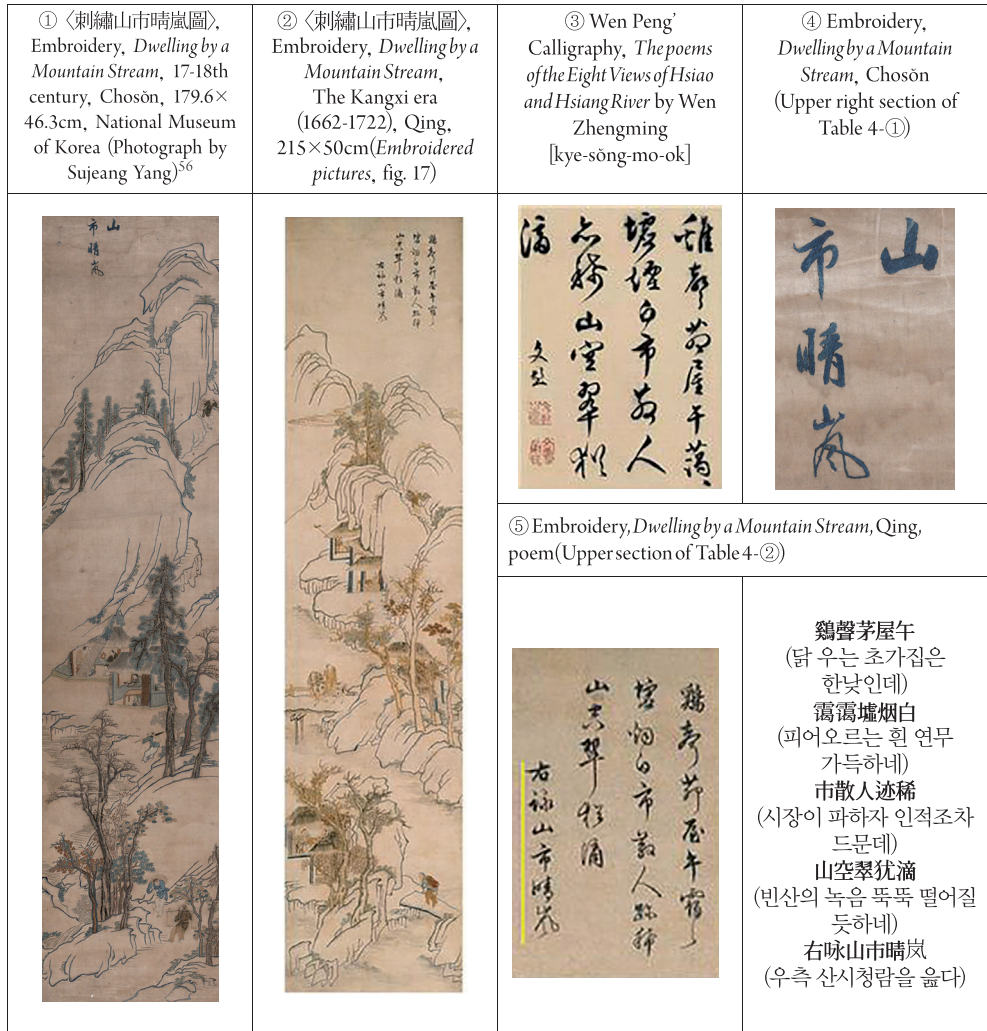 ① 〈刺繡山市晴嵐圖〉,
Embroidery, Dwelling by a
Mountain Stream, 17-18th
century, Chosŏn, 179.6×
46.3cm, National Museum
of Korea (Photograph by
Sujeang Yang)56
② 〈刺繡山市晴嵐圖〉,
Embroidery, Dwelling by a
Mountain Stream,
The Kangxi era
(1662-1722), Qing,
215×50cm(Embroidered
pictures, fig. 17)
③ Wen Peng’
Calligraphy, The poems
of the Eight Views of Hsiao
and Hsiang River by Wen
Zhengming
[kye-sŏng-mo-ok]
④ Embroidery,
Dwelling by a Mountain
Stream, Chosŏn
(Upper right section of
Table 4-①)
山
市晴嵐
雞聲茆屋午靄〻
墟烟白市散人跡稀
山空翠猶滴
右詠山市晴嵐
雞聲茆屋午靄〻
墟煙白市散人
山空翠猶
滴
文彭
山
市晴嵐
⑤ Embroidery, Dwelling by a Mountain Stream, Qing,
poem(Upper section of Table 4-②)
雞聲茆屋午靄〻
墟烟白市散人跡稀
山空翠猶滴
右詠山市晴嵐
鷄聲茅屋午
(닭 우는 초가집은
한낮인데)
靄靄墟烟白
(피어오르는 흰 연무
가득하네)
市散人迹稀
(시장이 파하자 인적조차
드문데)
山空翠犹滴
(빈산의 녹음 뚝뚝 떨어질
듯하네)
右咏山市晴岚
(우측 산시청람을 읊다)